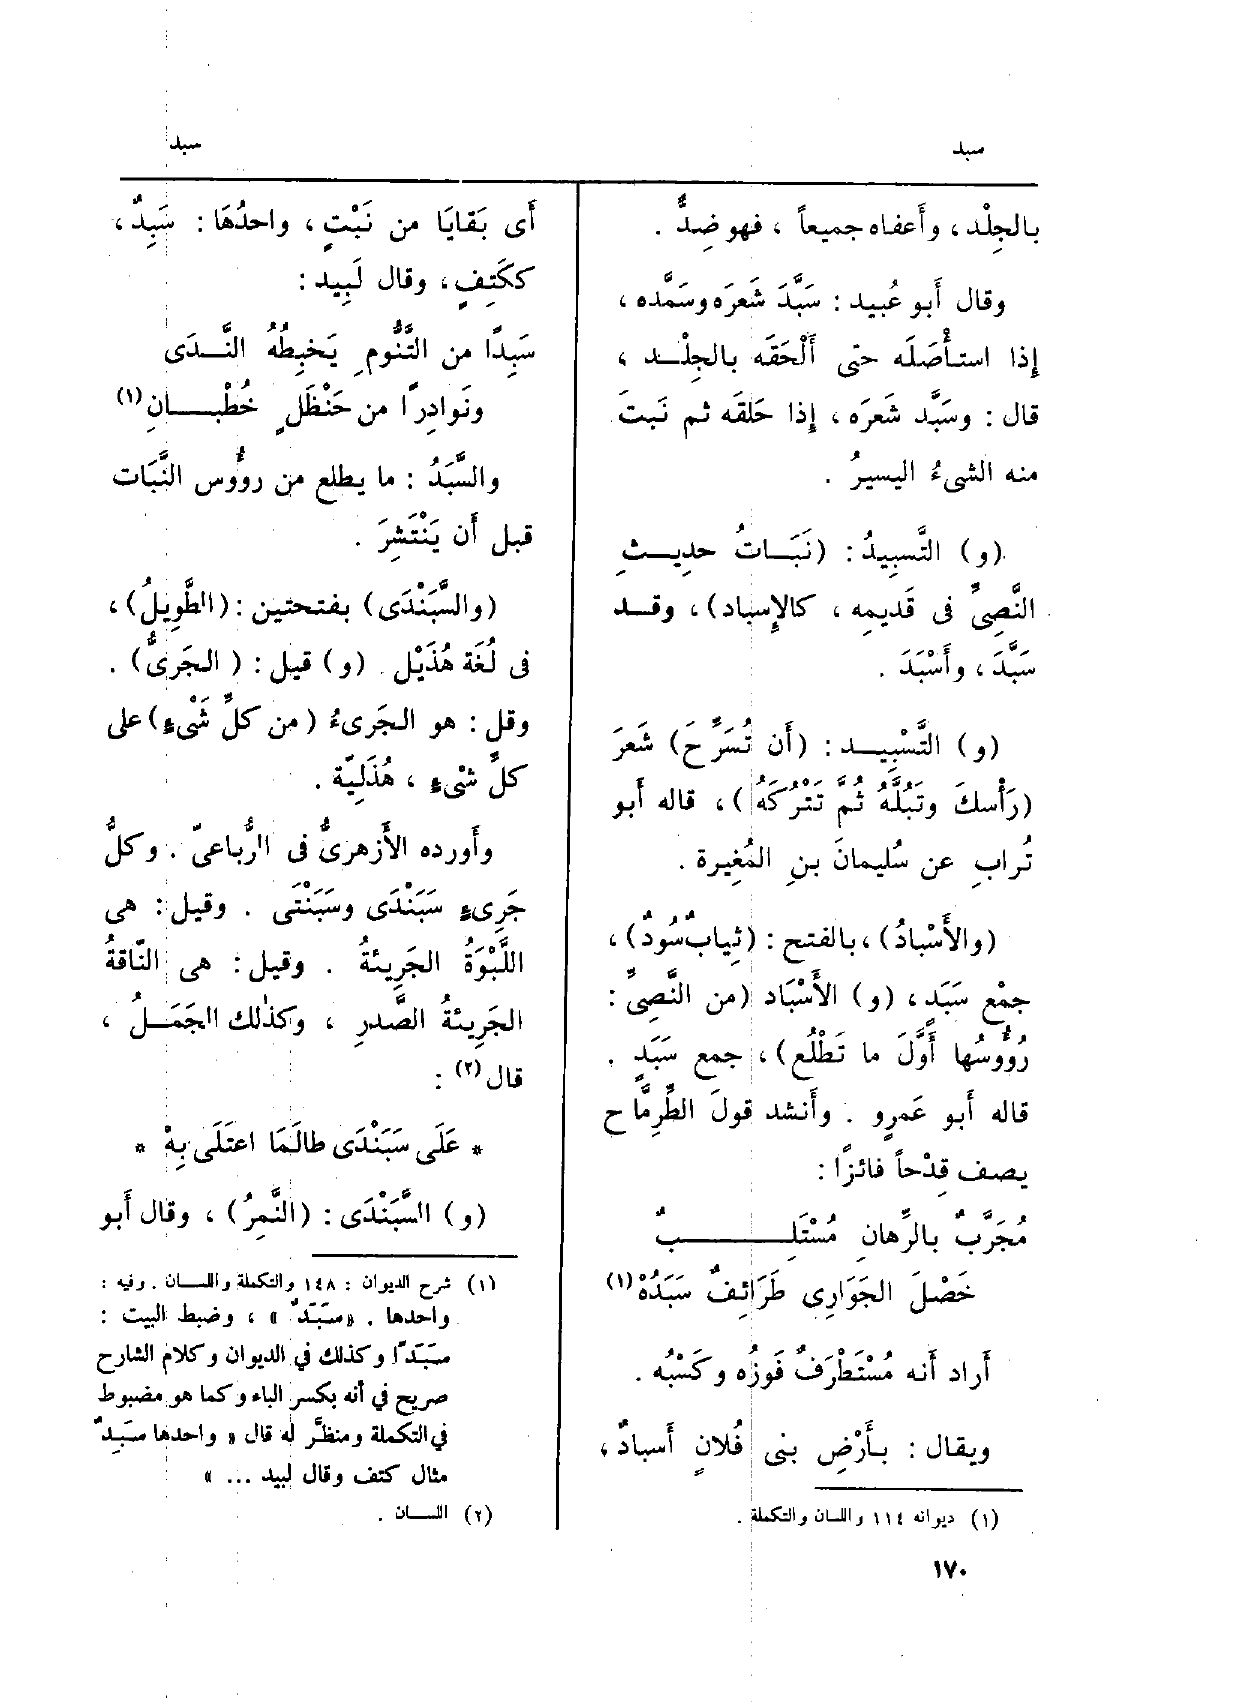 سبد
سبد
بالجِلْد، وأَعفاه جميعاً ، فهو ضِدٌّ .
وقال أَبو عُبيد : سَبَّدَ شَعرَه وسَمَّده ،
إِذا استأْصَلَه حتى أَلْحَقَه بالجِلْـد ،
قال : وسَبَّد شَعرَه ، إِذا حَلقَه ثم نَبتَ
منه الشىءُ اليسيرُ .
(و) التَّسبِيدُ : (نَبَـاتُ حدِيـثِ
النَّصِىِّ فى قَديمِه ، كالإِسباد)، وقـد
سَبَّدَ ، وأَسْبَدَ .
(و) التَّسْبِيـد : (أَن تُسَرِّحَ) شَعرَ
(رَأْسكَ وتَبُلَّهُ ثُمَّ تَتْرُكَهُ)، قاله أَبو
تُرابٍ عن سُليمانَ بنِ المُغِيرة .
(والأَسْبادُ)، بالفتح : (ثِيابٌ سُودٌ)،
جمْع سَبَدٍ ، (و) الأَسْبَاد (من النَّصِىِّ :
رُؤُوسُها أَوَّلَ ما تَطْلُع)، جمع سَبَدٍ .
قاله أَبو عَمرٍو . وأَنشد قولَ الطِّرِمَّاح
يصف قِدْحاً فائزًا :
مُجَرَّبٌ بالرِّهانِ مُسْتَلِـــــبٌ
خَصْلَ الجَوَارِى طَرَائفٌ سَبَدُهْ (١)
أَراد أَنه مُسْتَطْرَفٌ فَوزُه وكَسْبُه .
ويقال : بأَرْضِ بنى فُلانٍ أَسبادٌ ،
(١) ديوانه ١١٤ واللسان والتكملة .
أَى بَقايَا من نَبْتٍ ، واحدُهَا : سَبِدٌ ،
ككَتِفٍ ، وقال لَبِيد :
سَبِدًا من التَّنُّومِ يَخبِطُهُ النَّـدَى
ونَوادِرًا من حَنْظَلٍ خُطْبَــانِ (١)
والسَّبَدُ : ما يطلع من رؤُوس النَّبَات
قبل أَن يَنْتَشِرَ .
(والسَّبَنْدَى) بفتحتين : (الطَّوِيلُ)،
فى لُغَة هُذَيْل . (و) قيل : (الجَرىُّ) .
وقل : هو الجَرىءُ (من كلِّ شَىْءٍ) على
كلِّ شىْءٍ ، هُذَلِيّة .
وأَورده الأَزهرىُّ فى الرُّباعىّ . وكلُّ
جَرِىءٍ سَبَنْدَى وسَبَنْتَى . وقيل : هى
اللَّبْوَةُ الجَرِيئةُ . وقيل : هى النّاقةُ
الجَرِيئةُ الصَّدرِ ، وكذٰلك الجَمَـلُ ،
قال (٢) :
* عَلَى سَبَنْدَى طالَمَا اعتَلَى بِهْ *
(و) السَّبَنْدَى : (النَّمِرُ) ، وقال أَبو
(١) شرح الديوان : ١٤٨ والتكملة واللسـان . وفيه :
واحدها . « سَبَدٌ » ، وضبط البيت :
سَبَدًا وكذلك في الديوان وكلام الشارح
صريح في أنه بكسر الباء وكما هو مضبوط
في التكملة ومنظَّر له قال « واحدها سَبِدٌ
مثال كتف وقال لبيد ... »
(٢) اللسـان .
١٧٠